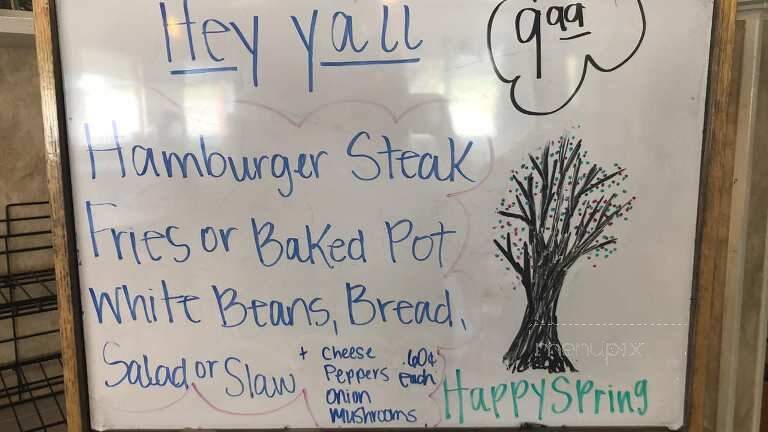 Hey yall
9 99
Hamburger Steak
Fries or Baked Pot
White Beans, Bread,
Salad or Slaw
+ Cheese
Peppers
onion
Mushrooms
.60¢
each
menupix
Happy Spring